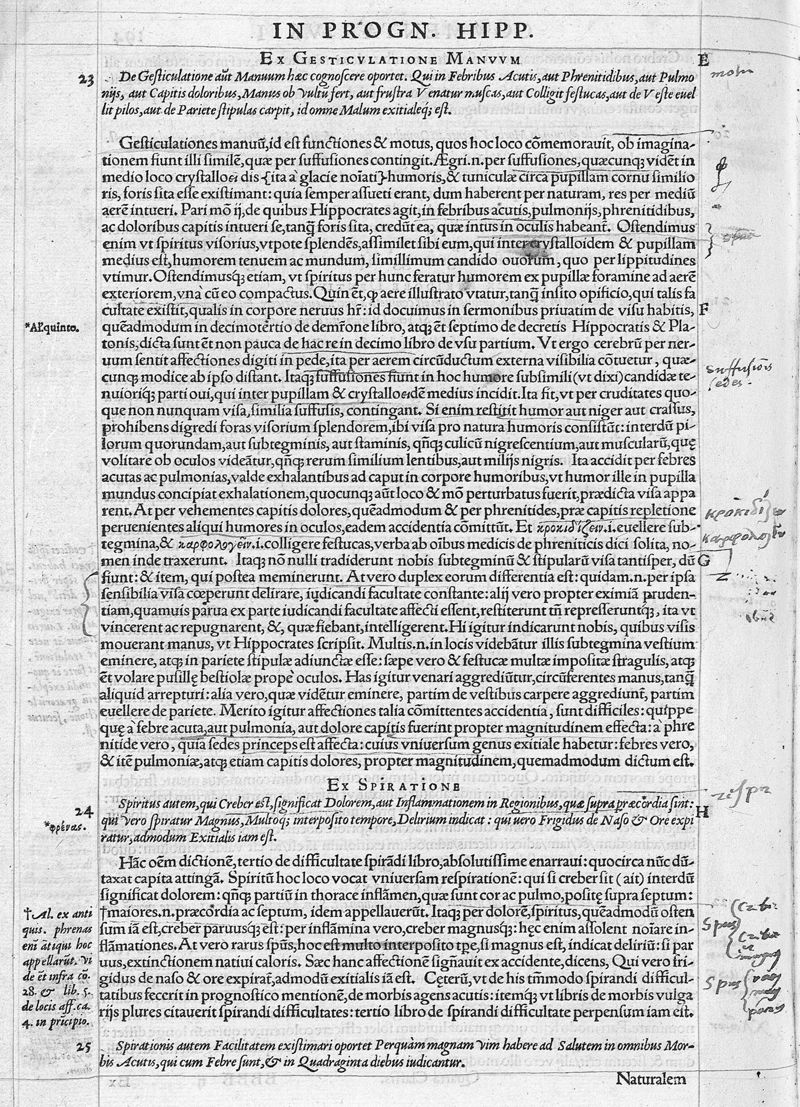 IN PROGN. HIPP.
EX GESTICVLATIONE MANVVM
E
23
De Gesticulatione aũt Manuum hæc cognoscere oportet. Qui in Febribus Acutis, aut Phrenitidibus, aut Pulmo
nijs, aut Capitis doloribus, Manus ob Vultũ fert, aut frustra Venatur muscas, aut Colligit festucas, aut de Veste euel
lit pilos, aut de Pariete stipulas carpit, id omne Malum exitialeq; est.
Gesticulationes manuũ, id est functiões & motus, quos hoc loco cõmemorauit, ob imagina-
tionem fiunt illi similẽ, quæ per suffusiones contingit. Ægri.n. per suffusiones, quæcunq; vidẽt in
medio loco crystalloει dis {ita à glacie noĩati} humoris, & tuniculæ circa pupillam cornu similio
ris, foris sita esse existimant: quia semper assueti erant, dum haberent per naturam, res per mediũ
aerẽ intueri. Pari mõ ij, de quibus Hippocrates agit, in febribus acutis, pulmonijs, phrenitidibus,
ac doloribus capitis intueri se, tanq̃ foris sita, credũt ea, quæ intus in oculis habeant̃. Ostendimus
enim vt spiritus visorius, vtpote splendẽs, assimilet sibi eum, qui inter crystalloidem & pupillam
medius est, humorem tenuem ac mundum, simillimum candido ouorum, quo per lippitudines
vtimur. Ostendimusq; etiam, vt spiritus per hunc feratur humorem ex pupillæ foramine ad aerẽ
exteriorem, vnà cũ eo compactus. Quin ẽt, q̃ aere illustrato vtatur, tanq̃ insito opificio, qui talis fa
cultate existit, qualis in corpore neruus hr̃: id docuimus in sermonibus priuatim de visu habitis,
F
*Al. quinto.
quẽadmodum in decimotertio de demr̃one libro, atq; ẽt septimo de decretis Hippocratis & Pla-
tonis, dicta sunt ẽt non pauca de hac re in decimo libro de vsu partium. Vt ergo cerebrũ per ner-
uum sentit affectiones digiti in pede, ita per aerem circũductum externa visibilia cõtuetur, quæ-
cunq; modice ab ipso distant. Itaq; suffusiones fiunt in hoc humore subsimili (vt dixi) candidæ te-
suffusiõis
nuioriq; parti oui, qui inter pupillam & crystalloειdẽ medius incidit. Ita fit, vt per cruditates quo-
sedes.
que non nunquam visa, similia suffusis, contingant. Si enim restitit humor aut niger aut crassus,
prohibens digredi foras visorium splendorem, ibi visa pro natura humoris consistũt: interdũ pi-
lorum quorundam, aut subtegminis, aut staminis, qñq; culicũ nigrescentium, aut muscarũ, quę
volitare ob oculos videãtur, qñq; rerum similium lentibus, aut milijs nigris. Ita accidit per febres
acutas ac pulmonias, valde exhalantibus ad caput in corpore humoribus, vt humor ille in pupilla
mundus concipiat exhalationem, quocunq; aũt loco & mõ perturbatus fuerit, prædicta visa appa
rent. At per vehementes capitis dolores, quẽadmodum & per phrenitides, præ capitis repletione
peruenientes aliqui humores in oculos, eadem accidentia cõmittũt. Et κροκιδίζειν. i. euellere sub-
tegmina, & καρφολογεῖν. i. colligere festucas, verba ab oĩbus medicis de phreniticis dici solita, no-
men inde traxerunt. Itaq; nõ nulli tradiderunt nobis subtegminũ & stipularũ visa tantisper, dũ
G
fiunt: & item, qui postea meminerunt. At vero duplex eorum differentia est: quidam.n. per ipsa
sensibilia visa cœperunt delirare, iudicandi facultate constante: alij vero propter eximiã pruden-
tiam, quamuis parua ex parte iudicandi facultate affecti essent, restiterunt tm̃ represseruntq;, ita vt
vincerent ac repugnarent, &, quæ fiebant, intelligerent. Hi igitur indicarunt nobis, quibus visis
mouerant manus, vt Hippocrates scripsit. Multis.n. in locis videbãtur illis subtegmina vestium
eminere, atq; in pariete stipulæ adiunctæ esse: sæpe vero & festucæ multæ impositæ stragulis, atq;
ẽt volare pusillę bestiolæ propè oculos. Has igitur venari aggrediũtur, circũferentes manus, tanq̃
aliquid arrepturi: alia vero, quæ vidẽtur eminere, partim de vestibus carpere aggrediunt̃, partim
euellere de pariete. Merito igitur affectiones talia cõmittentes accidentia, sunt difficiles: quippe
quę à febre acuta, aut pulmonia, aut dolore capitis fuerint propter magnitudinem effecta: à phre
nitide vero, quia sedes princeps est affecta: cuius vniuersum genus exitiale habetur: febres vero,
& itẽ pulmoniæ, atq; etiam capitis dolores, propter magnitudinem, quemadmodum dictum est.
EX SPIRATIONE
24
Spiritus autem, qui Creber est, significat Dolorem, aut Inflammationem in Regionibus, quæ supra præcordia sint:
H
*φρένας.
qui vero spiratur Magnus, Multoq; interposito tempore, Delirium indicat: qui uero Frigidus de Naso & Ore expi
ratur, admodum Exitialis iam est.
Hãc oẽm dictionẽ, tertio de difficultate spirãdi libro, absolutissime enarraui: quocirca nũc dũ-
taxat capita attingã. Spiritũ hoc loco vocat vniuersam respirationẽ: qui si creber sit (ait) interdũ
significat dolorem: qñq; partiũ in thorace inflãmen, quæ sunt cor ac pulmo, positę supra septum:
†Al. ex anti
quis. phrenas
enĩ atiqui hoc
appellarũt. vi
de ẽt infra cõ.
28. & lib. 5.
de locis aff. ca.
4. in pricipio.
†maiores.n. præcordia ac septum, idem appellauerũt. Itaq; per dolorẽ, spiritus, quẽadmodũ osten
sum iã est, creber paruusq; est: per inflãmina vero, creber magnusq;: hęc enim assolent noĩare in-
flãmationes. At vero rarus spũs, hoc est multo interposito tpe, si magnus est, indicat deliriũ: si par
uus, extinctionem natiui caloris. Sæc hanc affectionẽ signãuit ex accidente, dicens, Qui vero fri-
gidus de naso & ore expirat̃, admodũ exitialis iã est. Cęterũ, vt de his tm̃modo spirandi difficul-
tatibus fecerit in prognostico mentionẽ, de morbis agens acutis: itemq; vt libris de morbis vulga
rijs plures citauerit spirandi difficultates: tertio libro de spirãdi difficultate perpensum iam eit.
25
Spirationis autem Facilitatem existimari oportet Perquàm magnam vim habere ad Salutem in omnibus Mor-
bis Acutis, qui cum Febre sunt, & in Quadraginta diebus iudicantur.
Naturalem